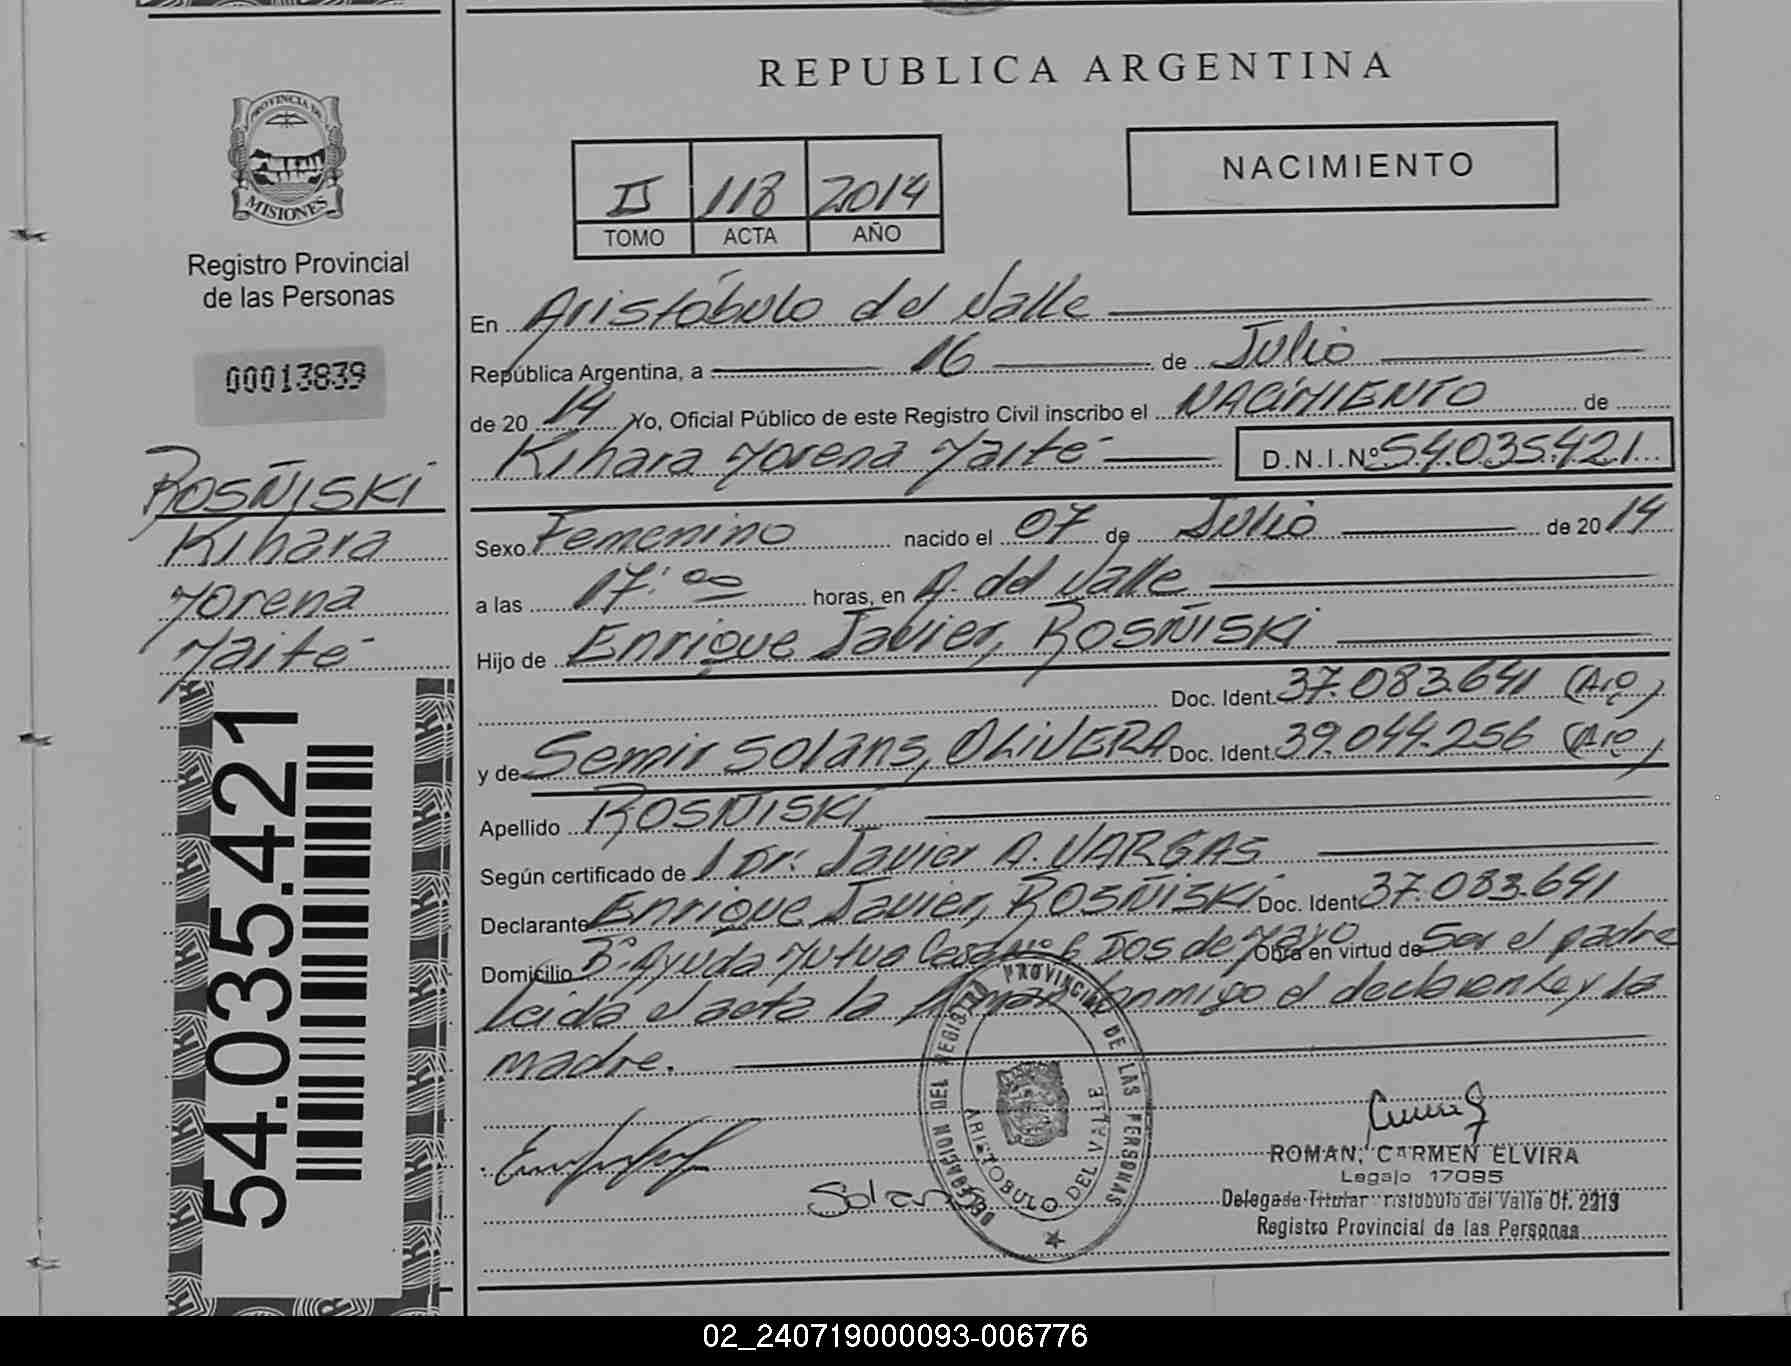 PROVINCIA DE
MISIONES
Registro Provincial
de las Personas
00013839
ROSÑISKI
Kihara
Morena
Maite
54.035.421
REPUBLICA ARGENTINA
II 118 2014
TOMO ACTA AÑO
NACIMIENTO
En Aristóbulo del Valle
República Argentina, a 16 de Julio
de 2014 Yo, Oficial Público de este Registro Civil inscribo el NACIMIENTO de
Kihara Morena Maite D.N.I.Nº 54.035.421
Sexo Femenino nacido el 07 de Julio de 2014
a las 17:00 horas, en A. del Valle
Hijo de Enrique Javier, ROSÑISKI
Doc. Ident. 37.083.641 (Arg)
y de Semir Solans, OLIVERA Doc. Ident. 39.044.256 (Arg)
Apellido ROSÑISKI
Según certificado de 1 Dr: Javier A. VARGAS
Declarante Enrique Javier, ROSÑISKI Doc. Ident 37.083.641
Domicilio Bº Ayuda Mutua Casa Nº 6 Dos de Mayo Obra en virtud de Ser el padre
Leida el acta la firman conmigo el declarante y la
madre.
Solans
DELEGACION DEL REGISTRO PROVINCIAL DE LAS PERSONAS
ARISTOBULO DEL VALLE
ROMAN, CARMEN ELVIRA
Legajo 17085
Delegada Titular Aristóbulo del Valle Of. 2213
Registro Provincial de las Personas
02_240719000093-006776